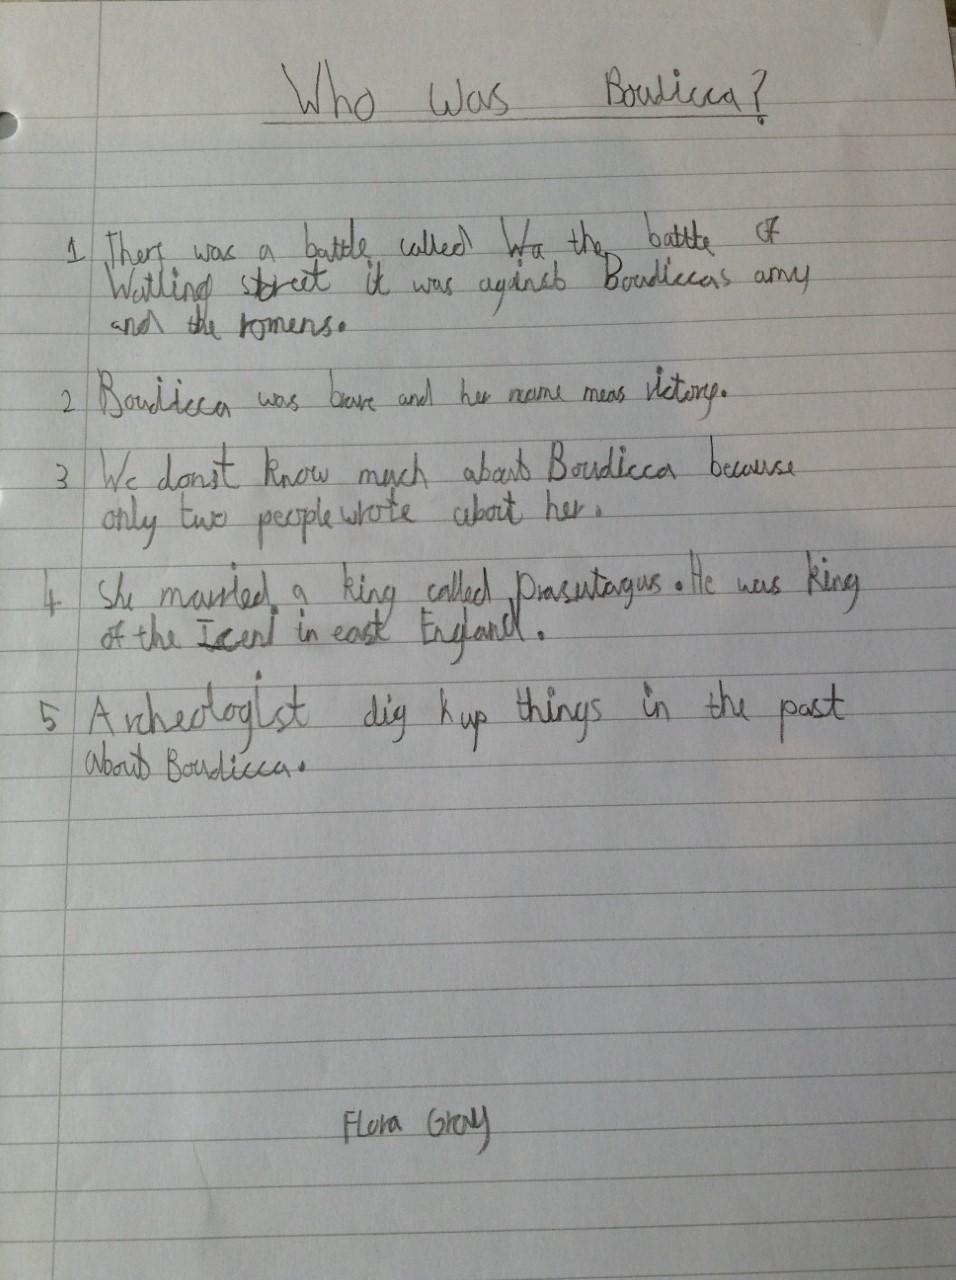 Who Was Boudicca?
1 There was a battle called Wa the battle of
Watling street it was aginst Boudiccas amy
and the romens.
2 Boudicca was brave and her name meas victory.
3 We donst know much about Boudicca because
only two people wrote about her.
4 She married a king called Prasutagus. He was king
of the Iceni in east England.
5 Archeologist dig up things in the past
about Boudicca.
Flora Gray